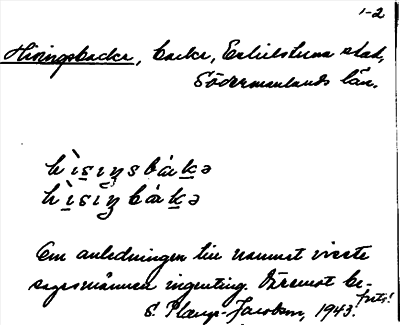 1-2
Hisingsbacke, backe, Eskilstuna stad,
Södermanlands län.
hìsiŋsbákə
hìsiŋbákə
Om anledningen till namnet visste
sagesmännen ingenting. Däremot be-
S. Plaup-Jacobson, 1943.